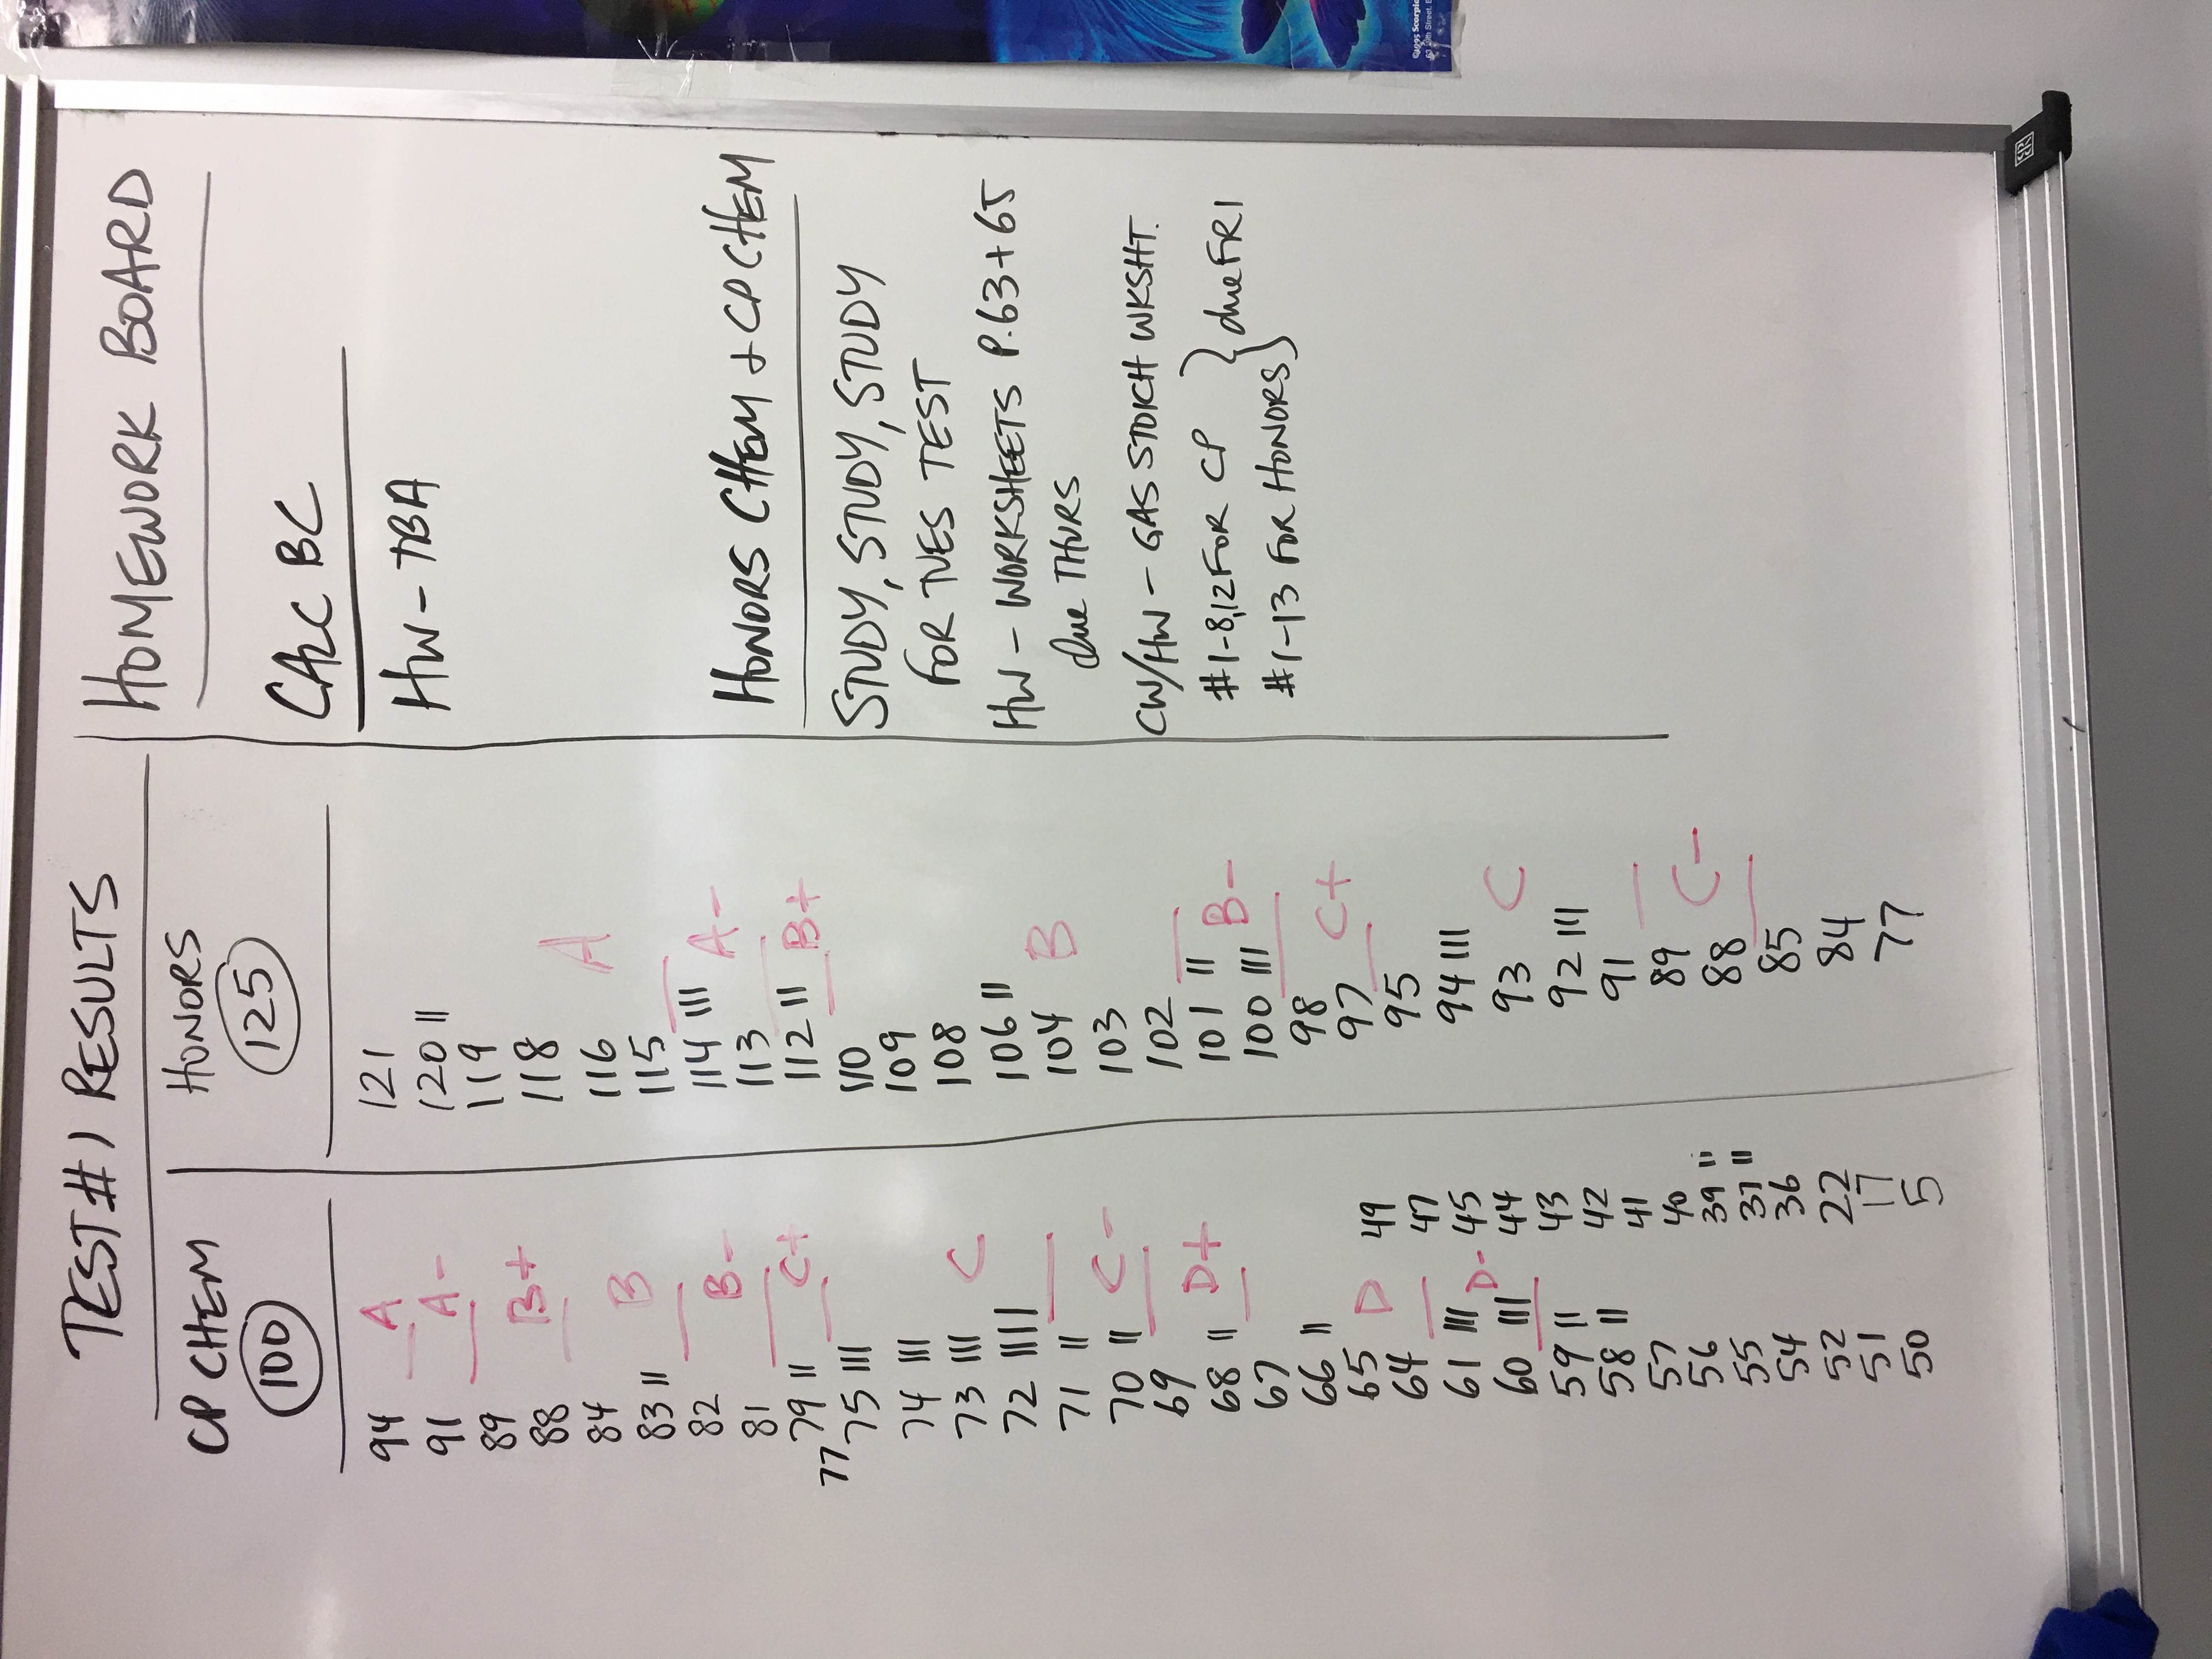 TEST #1 RESULTS
CP CHEM
100
94
A
91
A-
89
88
B+
84
83 ||
B
82
81
B-
79 ||
77
C+
75 |||
74 |||
73 |||
72 ||||
C
71 ||
70 ||
C-
69
68 ||
D+
67
66 ||
65
64
D
61 ||||
60 ||||
D-
59 ||
58 ||
57
56
55
54
52
51
50
49
47
45
44
43
42
41
40
39 ||
37 ||
36
22
17
5
HONORS
125
121
120 ||
119
118
116
115
A
114 |||
113
A-
112 ||
B+
110
109
108
106 ||
104
103
102
B
101 ||
100 |||
B-
98
97
C+
95
94 |||
93
92 |||
91
C
89
88
C-
85
84
77
HOMEWORK BOARD
CALC BC
HW - TBA
HONORS CHEM + CP CHEM
STUDY, STUDY, STUDY
FOR TUES TEST
HW - WORKSHEETS P.63+65
due THURS
CW/HW - GAS STOICH WKSHT.
#1-8,12 FOR CP
#1-13 FOR HONORS } due FRI
©1995 Scorpio